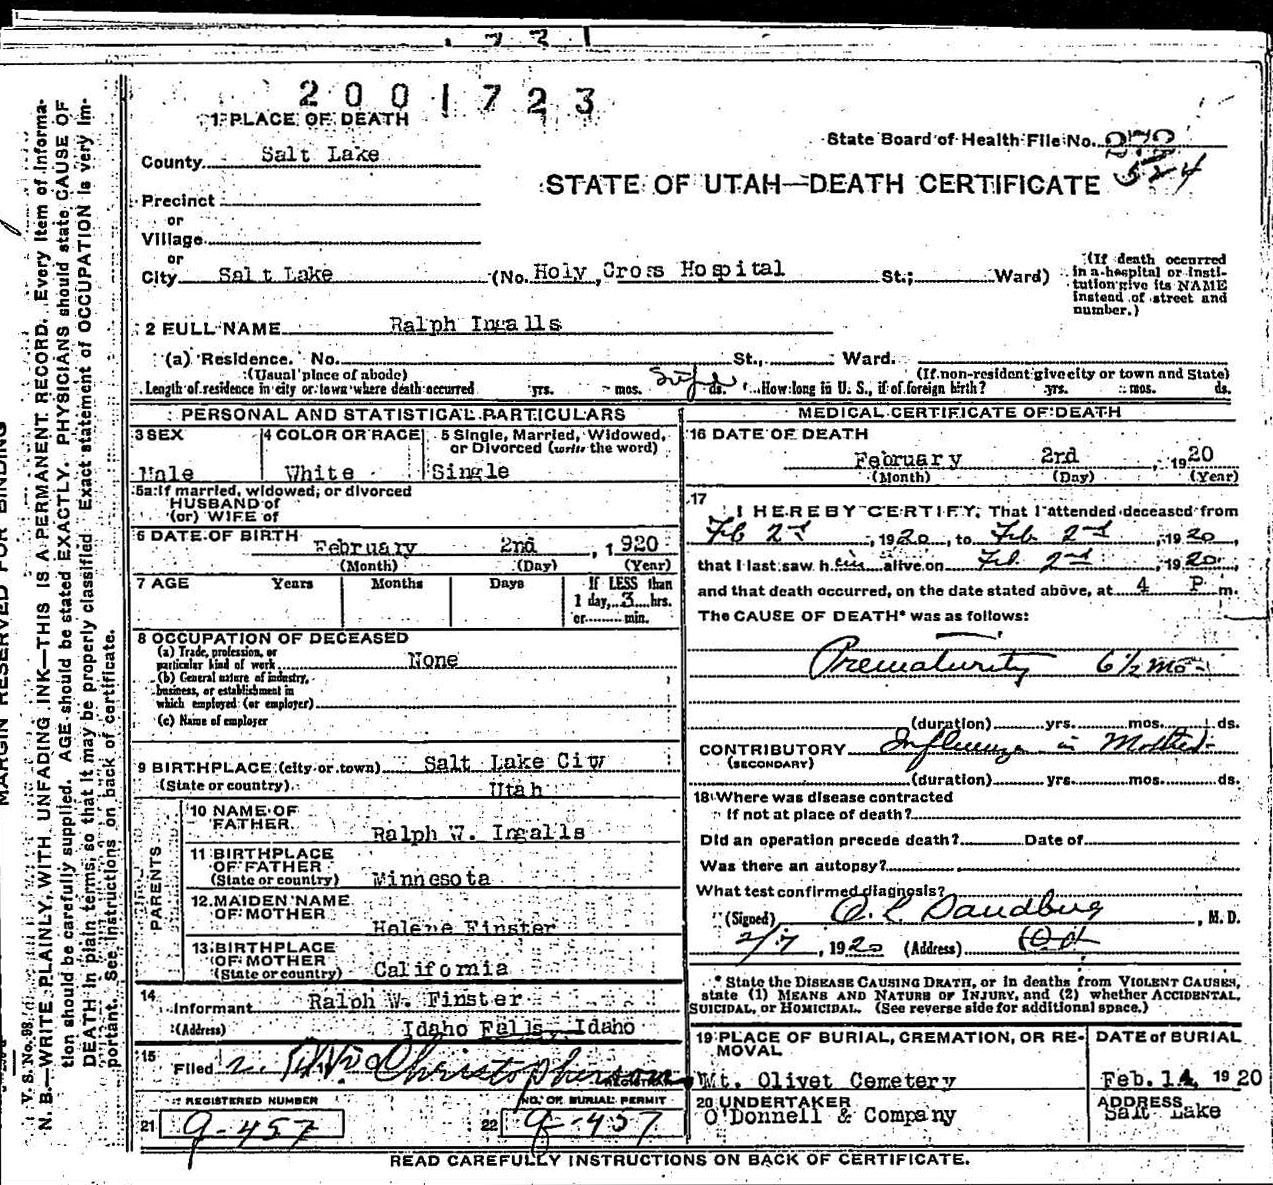 2001723
1 PLACE OF DEATH
State Board of Health File No. 272
524
County Salt Lake
STATE OF UTAH—DEATH CERTIFICATE
Precinct
or
Village
or
City Salt Lake (No. Holy Cross Hospital St.; Ward)
(If death occurred in a hospital or institution give its NAME instead of street and number.)
2 FULL NAME Ralph Ingalls
(a) Residence. No. St., Ward.
(Usual place of abode) (If non-resident give city or town and State)
Length of residence in city or town where death occurred yrs. mos. ds. How long in U. S., if of foreign birth? yrs. mos. ds.
PERSONAL AND STATISTICAL PARTICULARS
3 SEX 4 COLOR OR RACE 5 Single, Married, Widowed,
or Divorced (write the word)
Male White Single
5a If married, widowed, or divorced
HUSBAND of
(or) WIFE of
6 DATE OF BIRTH February 2nd, 1920
(Month) (Day) (Year)
7 AGE Years Months Days If LESS than
1 day, 3 hrs.
or min.
8 OCCUPATION OF DECEASED
(a) Trade, profession, or
particular kind of work None
(b) General nature of industry,
business, or establishment in
which employed (or employer)
(c) Name of employer
9 BIRTHPLACE (city or town) Salt Lake City
(State or country) Utah
PARENTS
10 NAME OF
FATHER Ralph W. Ingalls
11 BIRTHPLACE
OF FATHER
(State or country) Minnesota
12 MAIDEN NAME
OF MOTHER Helene Finster
13 BIRTHPLACE
OF MOTHER
(State or country) California
14
Informant Ralph W. Finster
(Address) Idaho Falls, Idaho
15
Filed Christopherson
REGISTERED NUMBER NO. OF BURIAL PERMIT
21 9-457 22 9-457
MEDICAL CERTIFICATE OF DEATH
16 DATE OF DEATH
February 2nd, 1920
(Month) (Day) (Year)
17
I HEREBY CERTIFY, That I attended deceased from
Feb 2nd, 1920, to Feb 2nd, 1920,
that I last saw him alive on Feb. 2nd, 1920,
and that death occurred, on the date stated above, at 4 P m.
The CAUSE OF DEATH* was as follows:
Prematurity 6½ mo-
(duration) yrs. mos. ds.
CONTRIBUTORY Influenza in Mother-
(SECONDARY)
(duration) yrs. mos. ds.
18 Where was disease contracted
If not at place of death?
Did an operation precede death? Date of
Was there an autopsy?
What test confirmed diagnosis?
(Signed) , M. D.
2/7, 1920 (Address)
* State the DISEASE CAUSING DEATH, or in deaths from VIOLENT CAUSES,
state (1) MEANS AND NATURE OF INJURY, and (2) whether ACCIDENTAL,
SUICIDAL, or HOMICIDAL. (See reverse side for additional space.)
19 PLACE OF BURIAL, CREMATION, OR RE-
MOVAL
Mt. Olivet Cemetery
DATE of BURIAL
Feb. 14, 1920
20 UNDERTAKER
O'Donnell & Company
ADDRESS
Salt Lake
READ CAREFULLY INSTRUCTIONS ON BACK OF CERTIFICATE.
MARGIN RESERVED FOR BINDING
V. S. No. 98
N. B.—WRITE PLAINLY, WITH UNFADING INK—THIS IS A PERMANENT RECORD. Every item of informa-
tion should be carefully supplied. AGE should be stated EXACTLY. PHYSICIANS should state CAUSE OF
DEATH in plain terms, so that it may be properly classified. Exact statement of OCCUPATION is very im-
portant. See instructions on back of certificate.